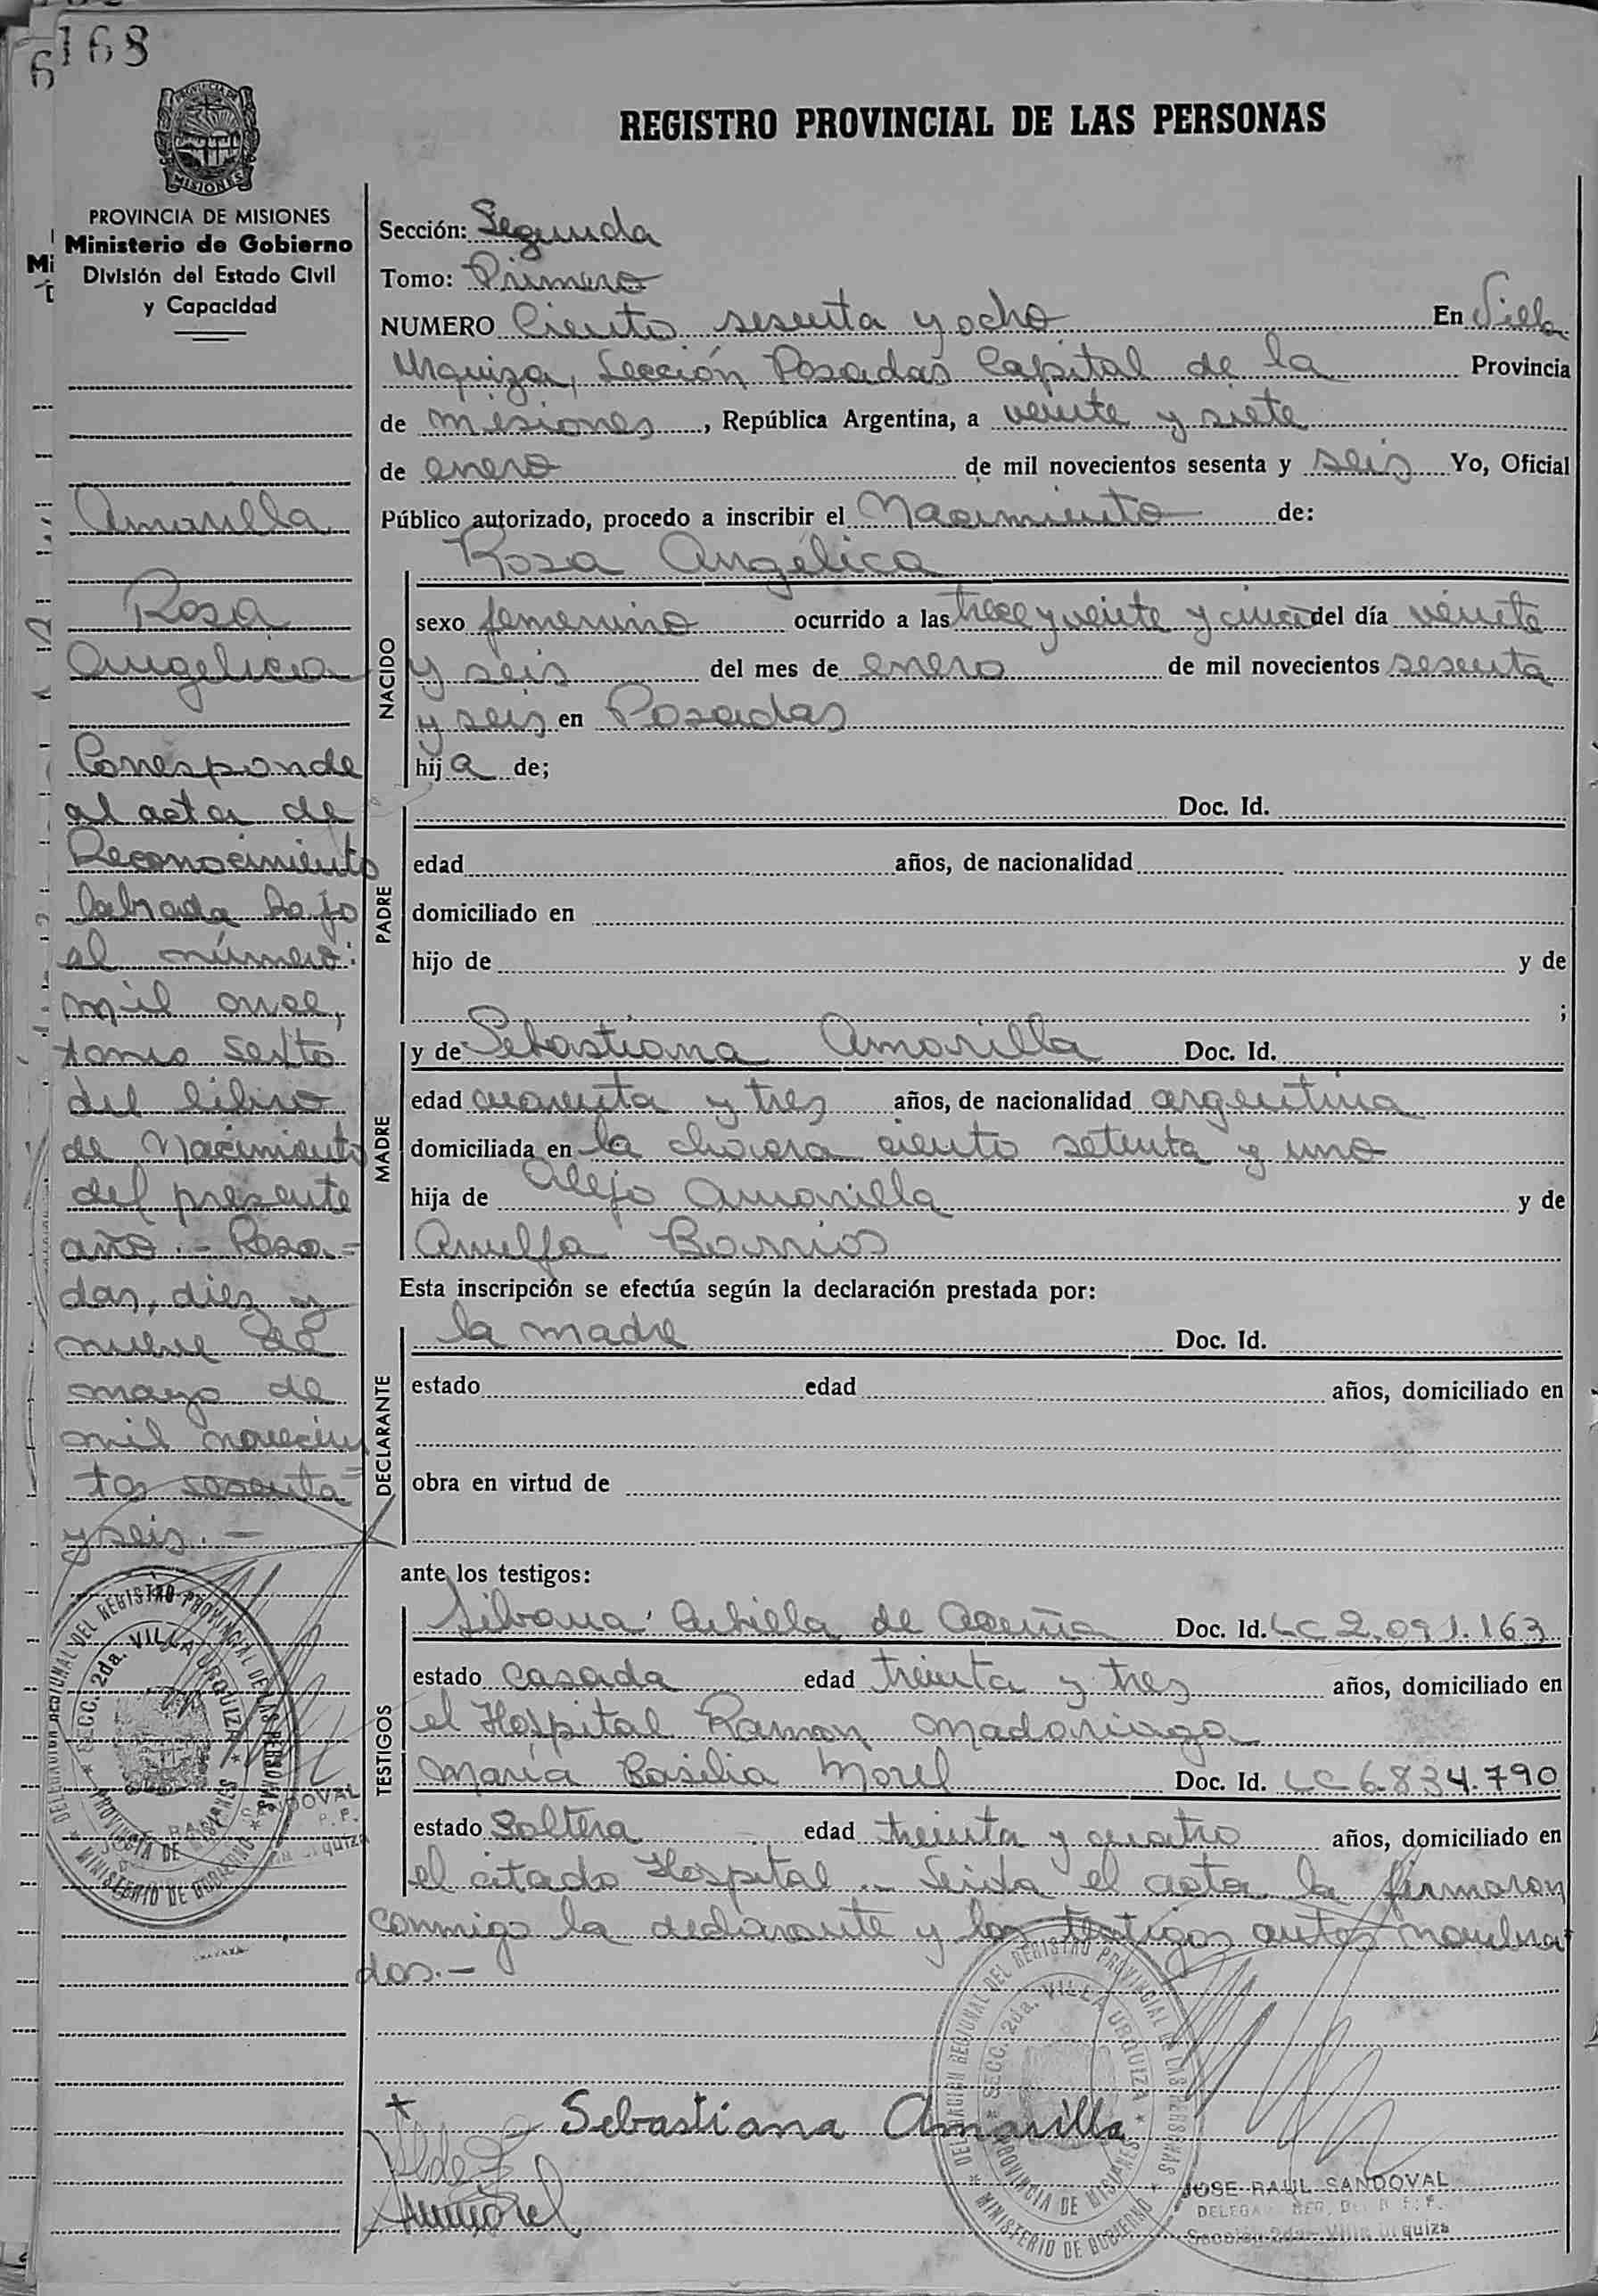 168
6
REGISTRO PROVINCIAL DE LAS PERSONAS
MISIONES
PROVINCIA DE MISIONES
Ministerio de Gobierno
División del Estado Civil
y Capacidad
Amarilla
Rosa
Angelica
Corresponde
al acta de
Reconocimiento
labrada bajo
el número:
mil once,
tomo sexto
del libro
de Nacimiento
del presente
año.- Posa=
das, diez y
nueve de
mayo de
mil novecien
tos sesenta=
y seis.-
DELEGACION REGIONAL DEL REGISTRO PROVINCIAL DE LAS PERSONAS
SECC. 2da. VILLA URQUIZA
PROVINCIA DE MISIONES
MINISTERIO DE GOBIERNO
Sección: Segunda
Tomo: Primero
NUMERO Ciento sesenta y ocho En Villa
Urquiza, Sección Posadas Capital de la Provincia
de misiones, República Argentina, a veinte y siete
de enero de mil novecientos sesenta y seis Yo, Oficial
Público autorizado, procedo a inscribir el Nacimiento de:
Rosa Angélica
NACIDO
sexo femenino ocurrido a las trece y veinte y cinco del día veinte
y seis del mes de enero de mil novecientos sesenta
y seis en Posadas
hija de;
PADRE
Doc. Id.
edad años, de nacionalidad
domiciliado en
hijo de y de
;
MADRE
y de Sebastiana Amarilla Doc. Id.
edad cuarenta y tres años, de nacionalidad argentina
domiciliada en la chacra ciento setenta y uno
hija de Alejo Amarilla y de
Arnulfa Barrios
Esta inscripción se efectúa según la declaración prestada por:
DECLARANTE
la madre Doc. Id.
estado edad años, domiciliado en
obra en virtud de
ante los testigos:
TESTIGOS
Silvana de Acuña Doc. Id. LC 2.091.163
estado casada edad treinta y tres años, domiciliado en
el Hospital Ramon Madariaga
María Basilia Morel Doc. Id. LC 6.834.790
estado soltera edad treinta y cuatro años, domiciliado en
el citado Hospital.- Leida el acta la firmaron
conmigo la declarante y los testigos antes nombra
dos.-
Sebastiana Amarilla
DELEGACION REGIONAL DEL REGISTRO PROVINCIAL DE LAS PERSONAS
SECC. 2da. VILLA URQUIZA
PROVINCIA DE MISIONES
MINISTERIO DE GOBIERNO
JOSE RAUL SANDOVAL
Sección 2da - Villa Urquiza